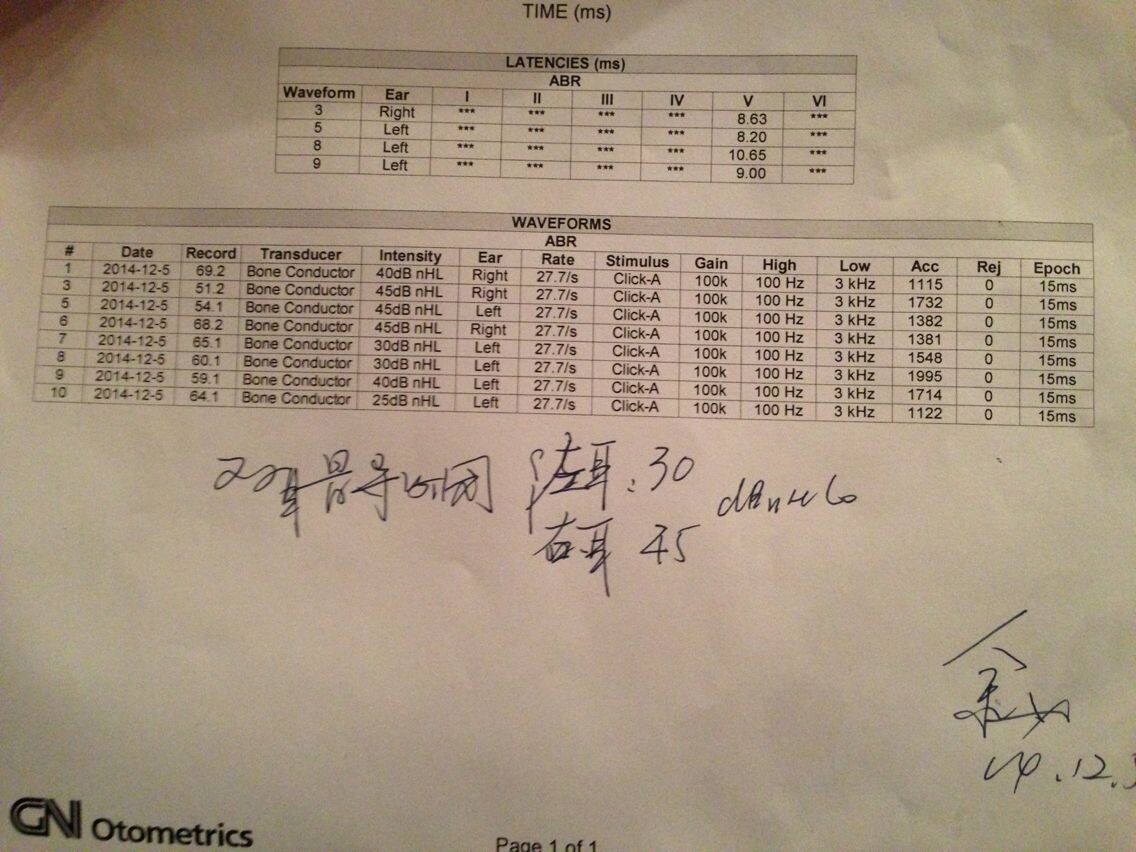 TIME (ms)
LATENCIES (ms)
ABR
Waveform Ear I II III IV V VI
3 Right *** *** *** *** 8.63 ***
5 Left *** *** *** *** 8.20 ***
8 Left *** *** *** *** 10.65 ***
9 Left *** *** *** *** 9.00 ***
WAVEFORMS
ABR
# Date Record Transducer Intensity Ear Rate Stimulus Gain High Low Acc Rej Epoch
1 2014-12-5 69.2 Bone Conductor 40dB nHL Right 27.7/s Click-A 100k 100 Hz 3 kHz 1115 0 15ms
3 2014-12-5 51.2 Bone Conductor 45dB nHL Right 27.7/s Click-A 100k 100 Hz 3 kHz 1732 0 15ms
5 2014-12-5 54.1 Bone Conductor 45dB nHL Left 27.7/s Click-A 100k 100 Hz 3 kHz 1382 0 15ms
6 2014-12-5 68.2 Bone Conductor 45dB nHL Right 27.7/s Click-A 100k 100 Hz 3 kHz 1381 0 15ms
7 2014-12-5 65.1 Bone Conductor 30dB nHL Left 27.7/s Click-A 100k 100 Hz 3 kHz 1548 0 15ms
8 2014-12-5 60.1 Bone Conductor 30dB nHL Left 27.7/s Click-A 100k 100 Hz 3 kHz 1995 0 15ms
9 2014-12-5 59.1 Bone Conductor 40dB nHL Left 27.7/s Click-A 100k 100 Hz 3 kHz 1714 0 15ms
10 2014-12-5 64.1 Bone Conductor 25dB nHL Left 27.7/s Click-A 100k 100 Hz 3 kHz 1122 0 15ms
双耳骨导 左耳:30
右耳 45
14.12.5
GN Otometrics
Page 1 of 1